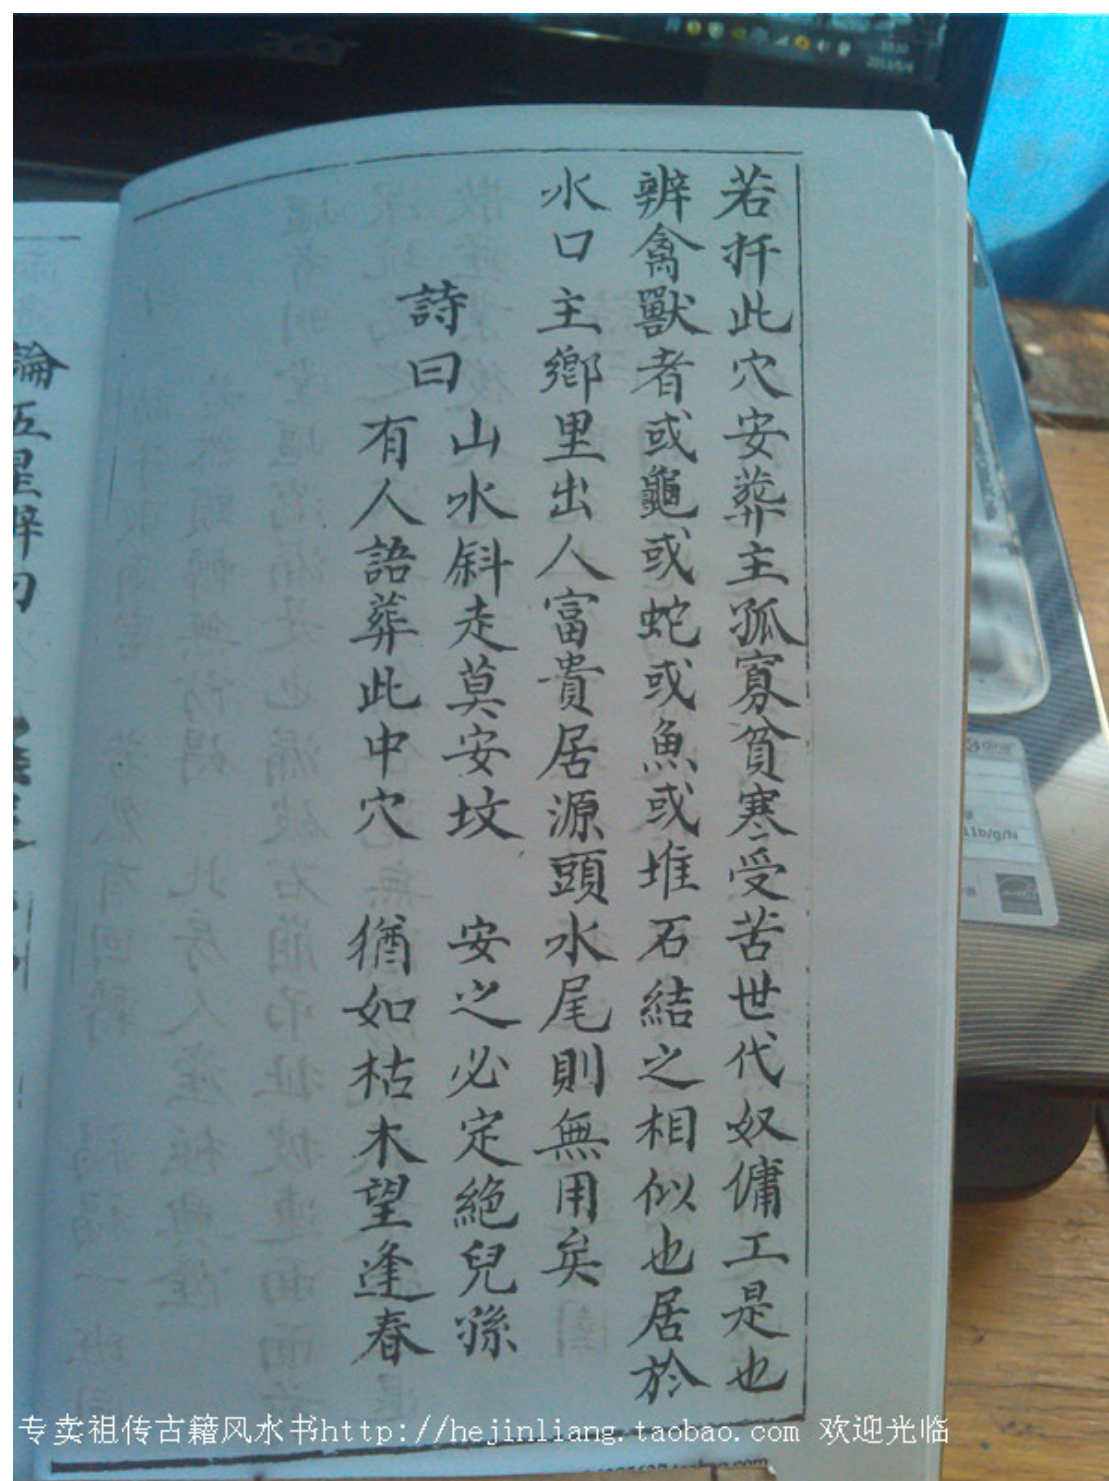 若扦此穴安葬主孤寡貧寒受苦世代奴傭工是也
辨禽獸者或龜或蛇或魚或堆石結之相似也居於
水口主鄉里出人富貴居源頭水尾則無用矣
詩曰
山水斜走莫安坟 安之必定絶兒孫
有人語葬此中穴 猶如枯木望逢春
論五星辯
专卖祖传古籍风水书http://hejinliang.taobao.com 欢迎光临